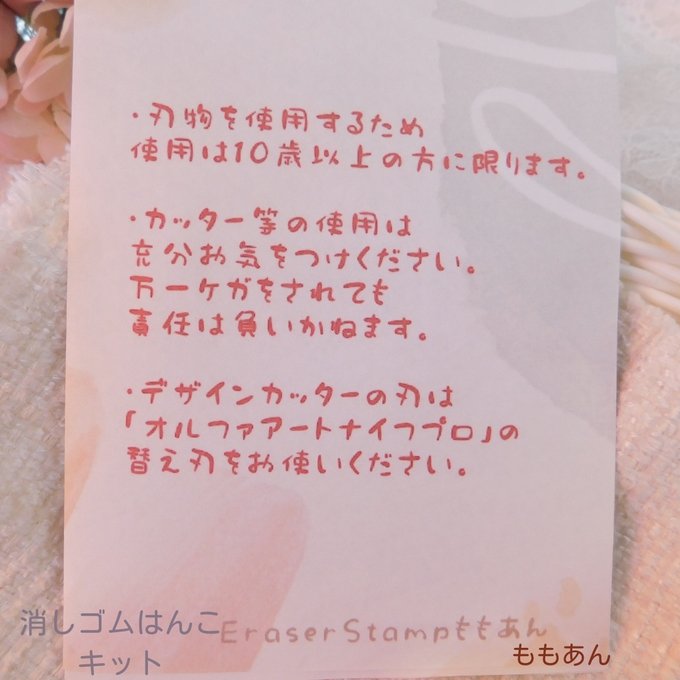 ・刃物を使用するため
使用は10歳以上の方に限ります。
・カッター等の使用は
充分お気をつけください。
万一ケガをされても
責任は負いかねます。
・デザインカッターの刃は
「オルファアートナイフプロ」の
替え刃をお使いください。
EraserStampももあん
消しゴムはんこ
キット
ももあん